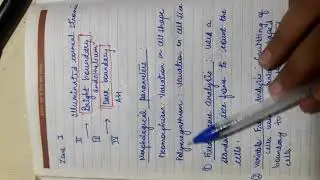 Zone I
Illuminated corneal stroma
II → Bright boundary
endothelium
III → Dark boundary
IV AH
Morphological parameters :
Pleomorphism : Variation in cell shape
Polymegathism : Variation in cell size
1) Fixed frame Analysis : Used a
standard size frame to count the
cells.
2) Variable Frame Analysis : Counting of
cells
boundary to
cells